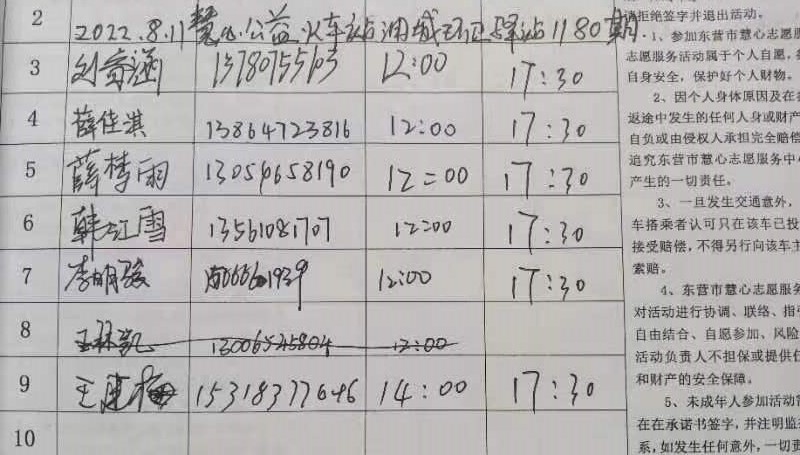 2
2022.8.11慧心公益火车站油城环卫驿站1180期
3 刘 13780755163 12:00 17:30
4 薛佳淇 13864723816 12:00 17:30
5 薛梦雨 13054658190 12:00 17:30
6 韩江雪 13561081707 12:00 17:30
7 李明骏 12:00 17:30
8 王林凯 13006545804 12:00
9 王建梅 15318377646 14:00 17:30
10
拒绝签字并退出活动。
1、参加东营市慧心志愿服
志愿服务活动属于个人自愿,
自身安全,保护好个人财物。
2、因个人身体原因及在
返途中发生的任何人身或财产
自负或由侵权人承担完全赔偿
追究东营市慧心志愿服务中心
产生的一切责任。
3、一旦发生交通意外,
车搭乘者认可只在该车已投
接受赔偿,不得另行向该车主
索赔。
4、东营市慧心志愿服务
对活动进行协调、联络、指
自由结合、自愿参加、风险
活动负责人不担保或提供任
和财产的安全保障。
5、未成年人参加活动
在在承诺书签字,并注明监
系,如发生任何意外,一切责